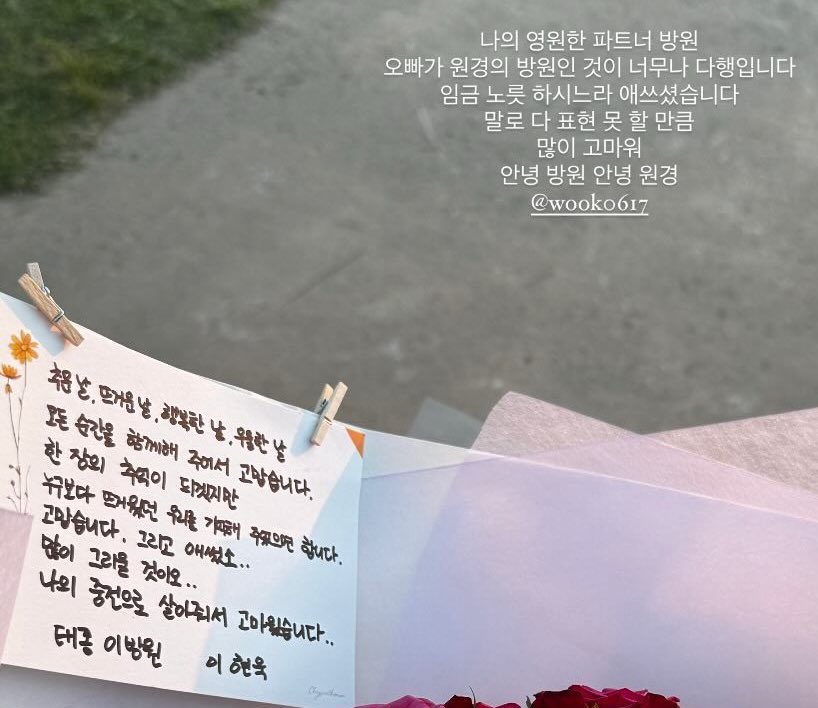 나의 영원한 파트너 방원
오빠가 원경의 방원인 것이 너무나 다행입니다
임금 노릇 하시느라 애쓰셨습니다
말로 다 표현 못 할 만큼
많이 고마워
안녕 방원 안녕 원경
@wook0617
추운 날, 뜨거운 날, 행복한 날, 우울한 날
모든 순간을 함께해 주어서 고맙습니다.
한 장의 추억이 되겠지만
누구보다 뜨거웠던 우리를 기억해 주었으면 합니다.
고맙습니다. 그리고 애썼소..
많이 그리울 것이오..
나의 중전으로 살아줘서 고마웠습니다..
태종 이방원 이현욱